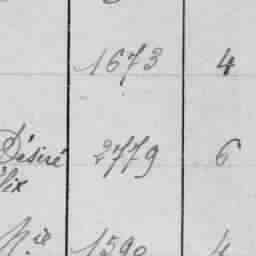 1673 4
Désiré 2779 6
lix
Mie 1590 4